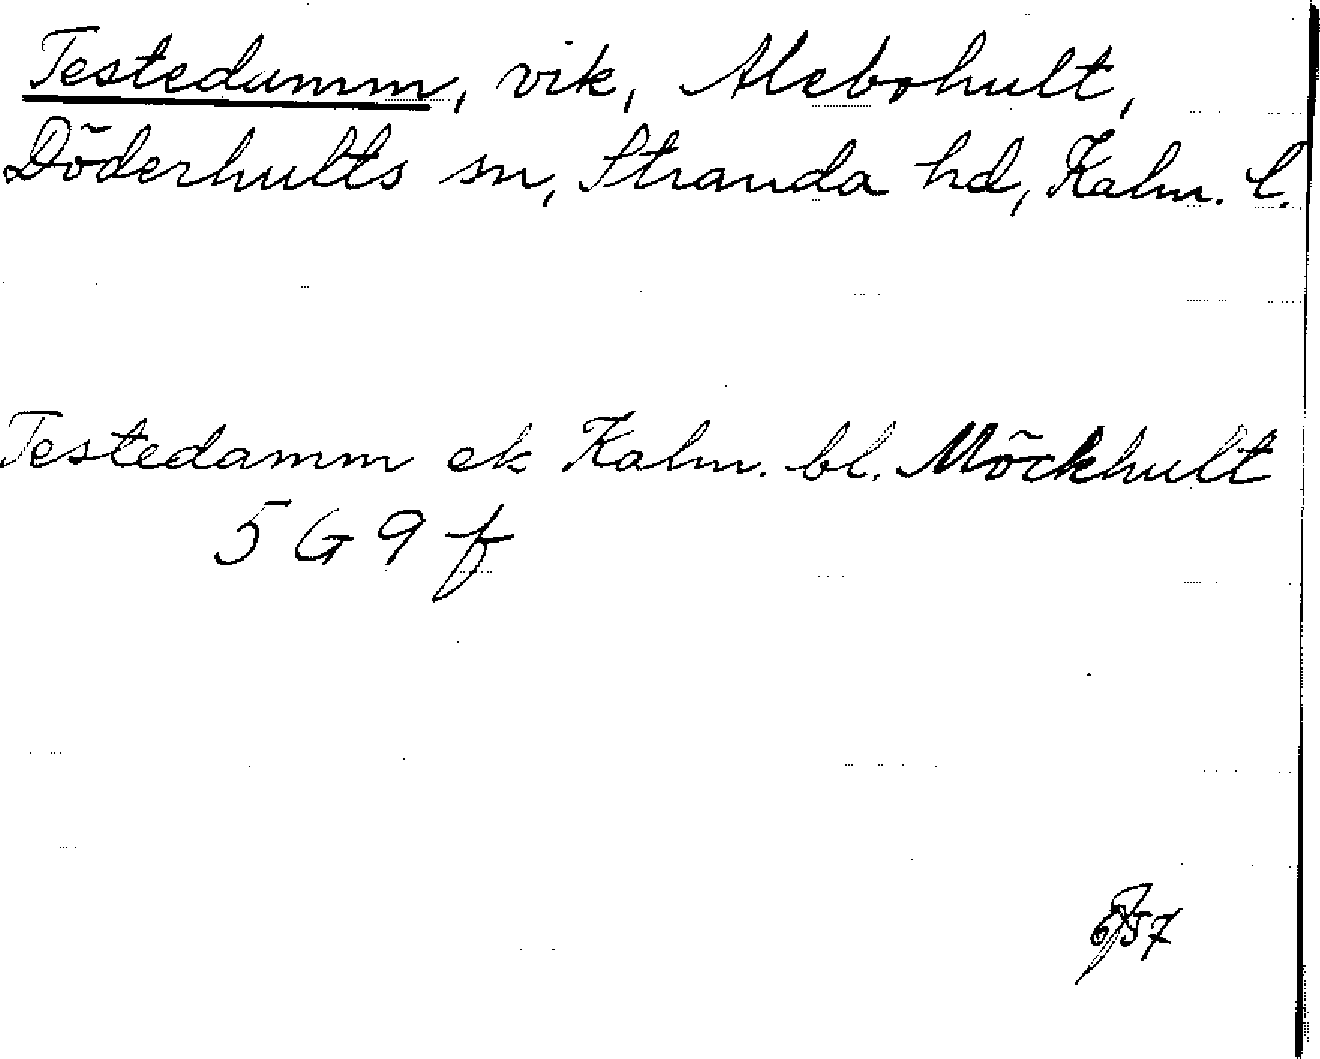 Testedamm, vik, Alebohult,
Döderhults sn, Stranda hd, Kalm. l.
Testedamm ek Kalm. bl. Möckhult
5 G 9 f